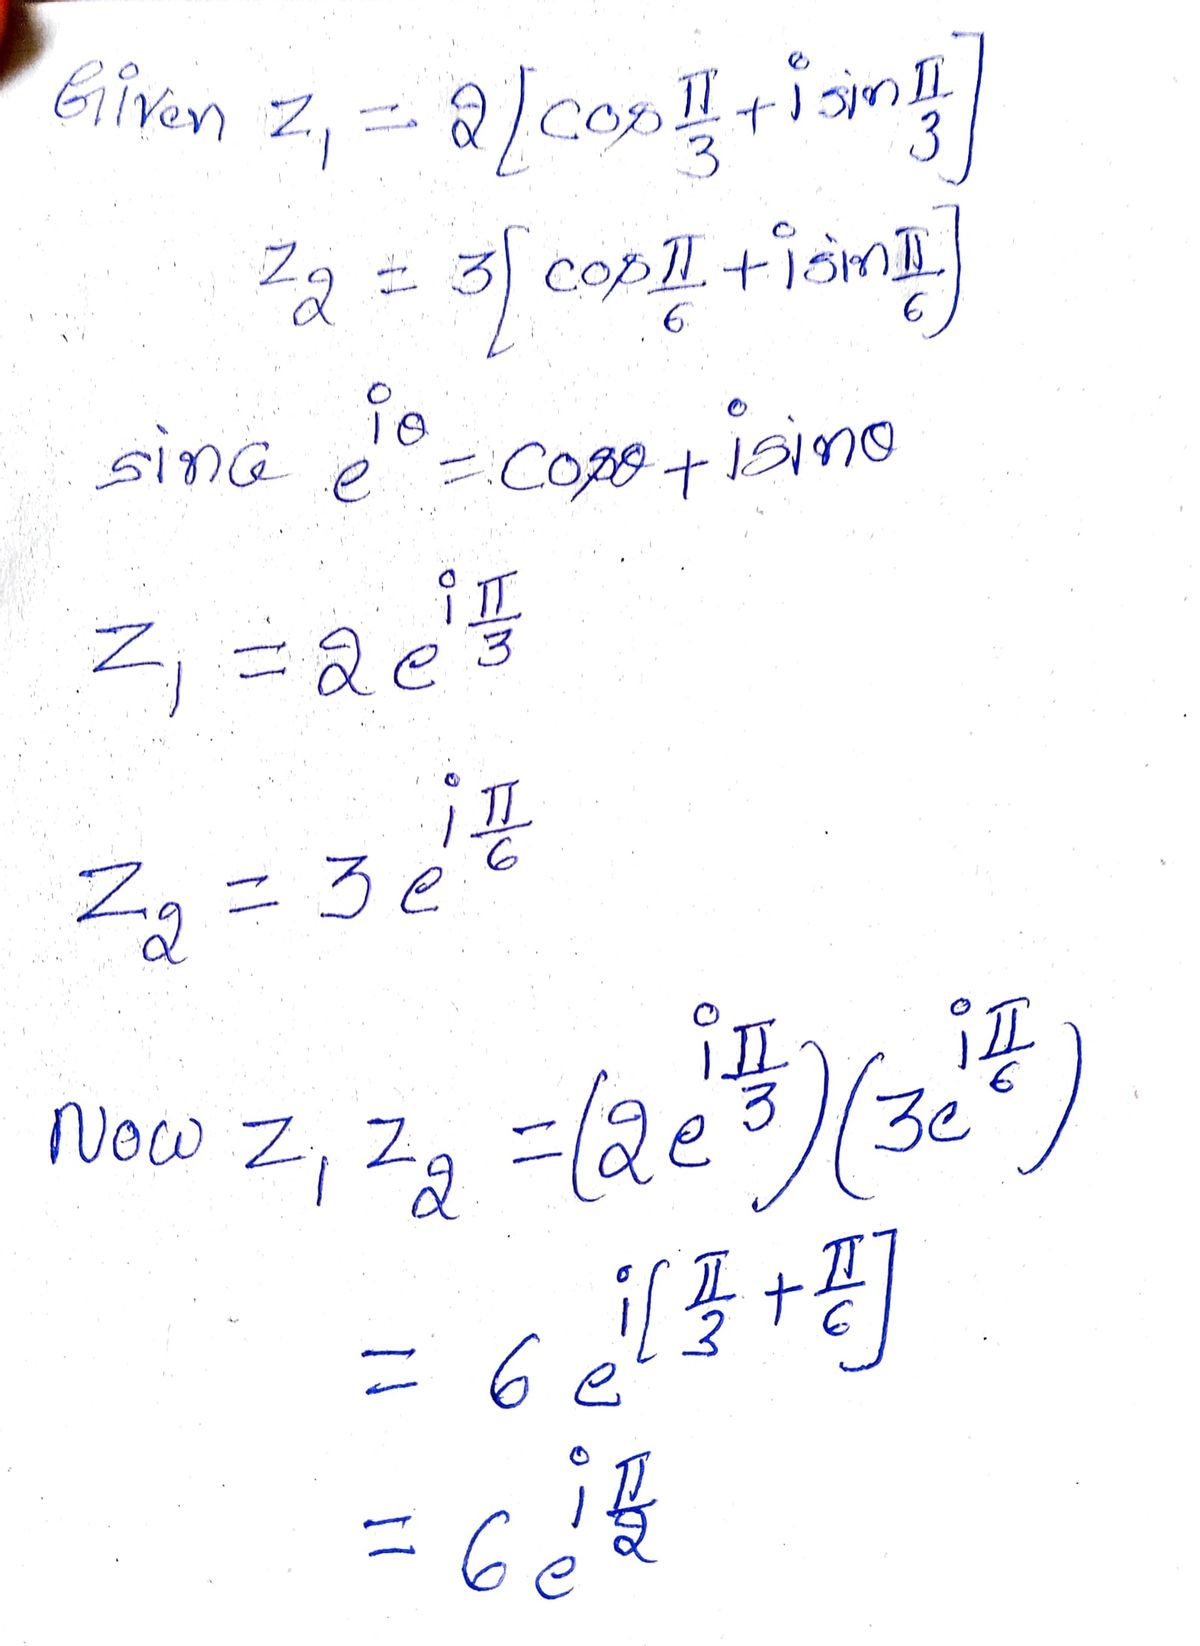 Given z₁ = 2[cos π/3 + i sin π/3]
z₂ = 3[cos π/6 + i sin π/6]
since e^{iθ} = cosθ + i sinθ
z₁ = 2e^{i π/3}
z₂ = 3e^{i π/6}
Now z₁ z₂ = (2e^{i π/3})(3e^{i π/6})
= 6e^{i[π/3 + π/6]}
= 6e^{i π/2}